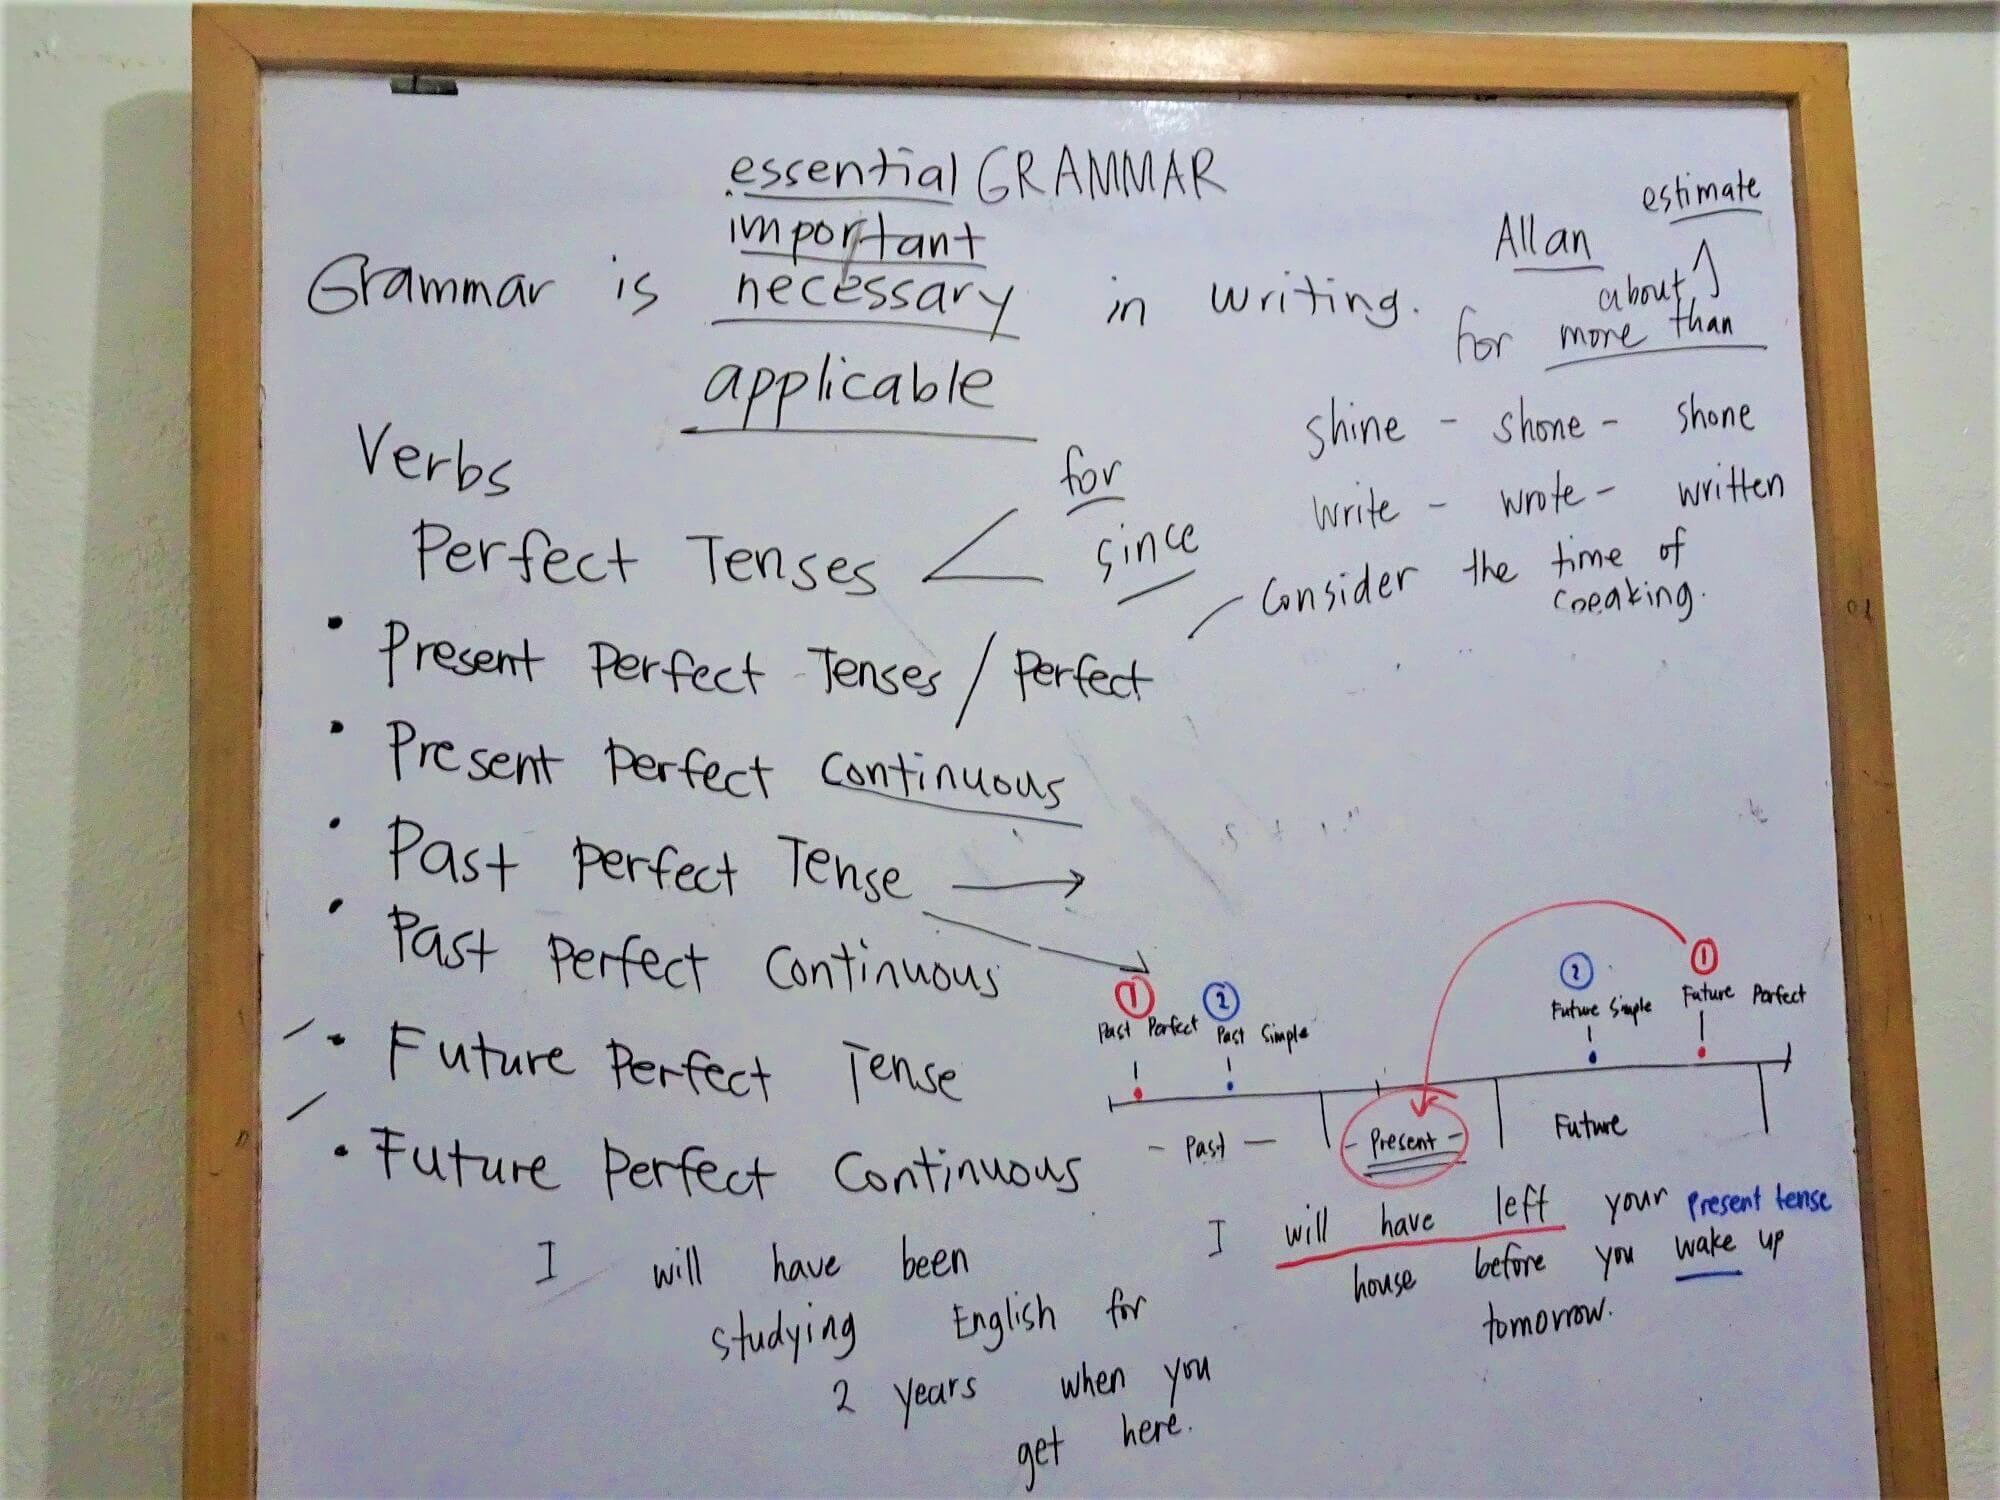 essential GRAMMAR
important
Grammar is necessary in writing.
applicable
estimate
Allan
about
for more than
shine - shone - shone
write - wrote - written
Verbs
for
Perfect Tenses
since
Consider the time of
speaking.
• Present Perfect Tenses / Perfect
• Present Perfect Continuous
• Past Perfect Tense
• Past Perfect Continuous
• Future Perfect Tense
• Future Perfect Continuous
1 2 2 1
Past Perfect Past Simple Future Simple Future Perfect
- Past - - Present - Future
I will have been
studying English for
2 years when you
get here.
I will have left your present tense
house before you wake up
tomorrow.